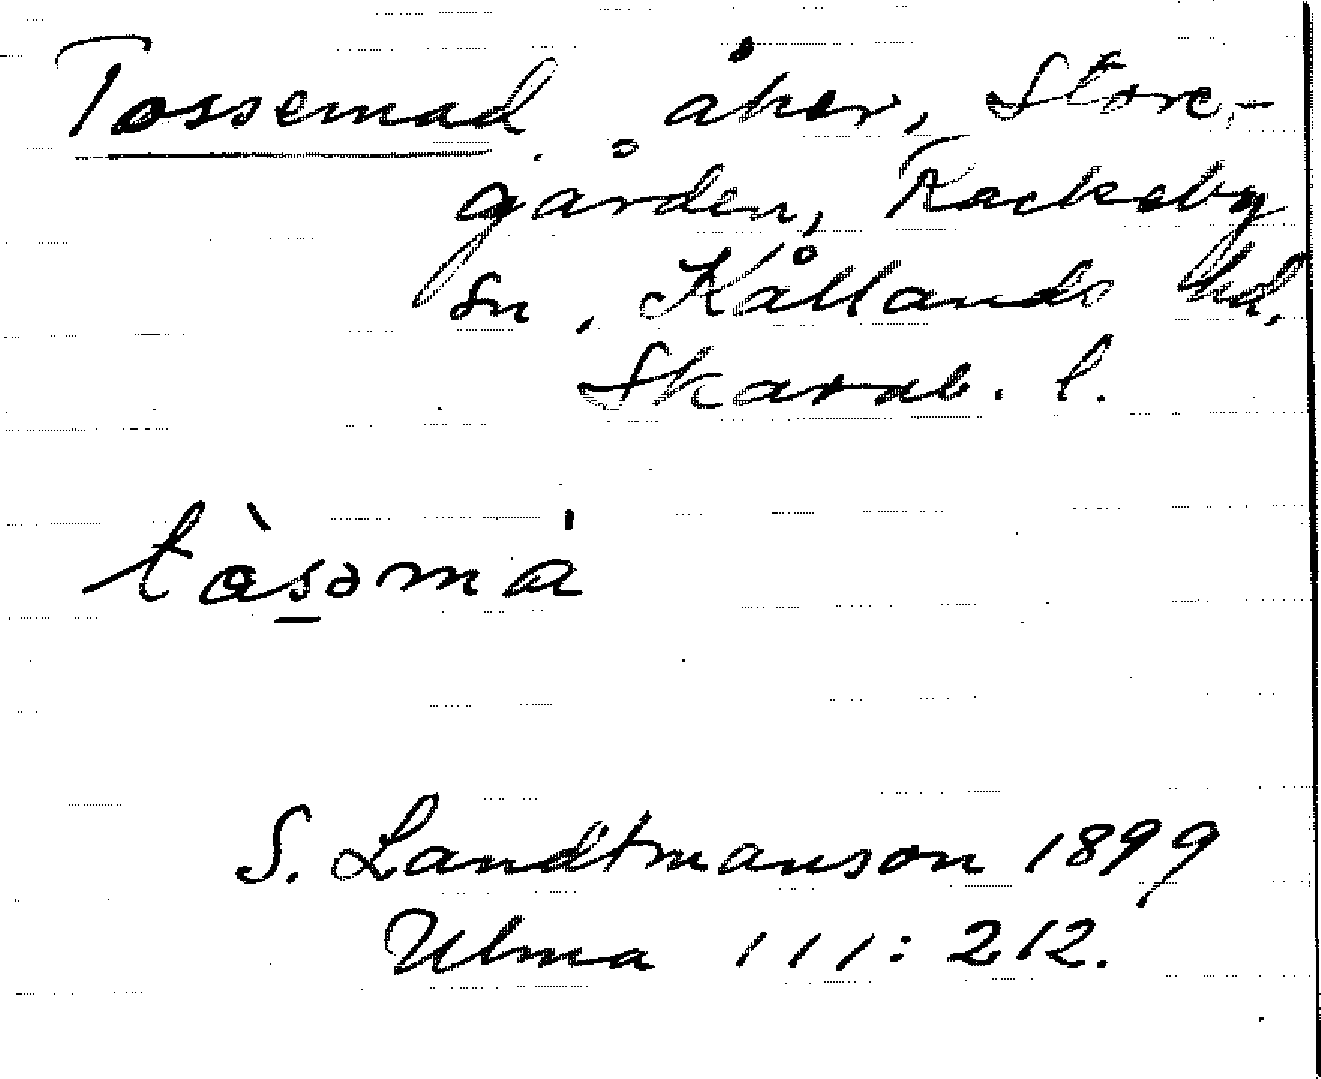 Tossemad, åker, Store-
gården, Rackeby
sn, Kållands hd.
Skarab. l.
tàsəmá
S. Landtmanson 1899
Ulma 111:212.